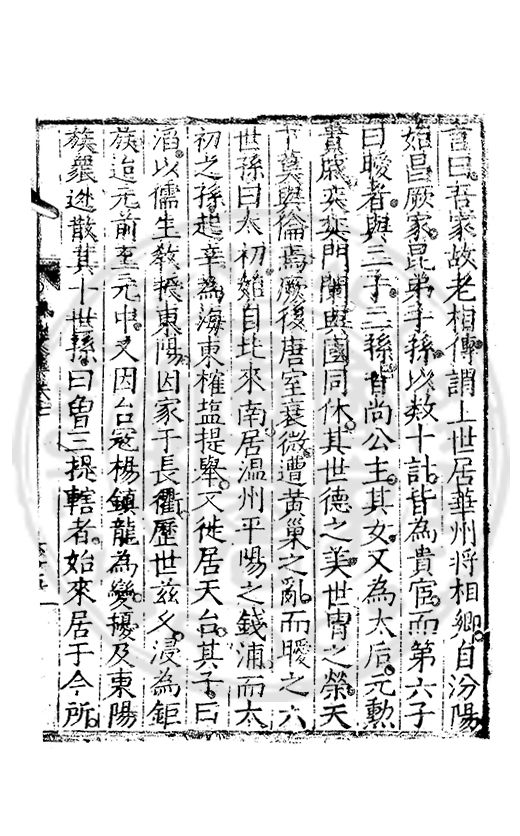 言曰吾家故老相傳謂上世居華州將相卿自汾陽
始昌厥家昆弟子孫以数十計皆為貴宦而第六子
曰曖者與三子三孫皆尚公主其女又為太后元勲
貴戚奕奕門闌與國同休其世德之美世胄之榮天
下莫與倫焉厥後唐室衰微遭黄巢之亂而曖之六
世孫曰太初始自北來南居温州平陽之錢浦而太
初之孫起辛為海東榷塩提舉又徙居天台其子曰
滔以儒生敎授東陽因家于長衢歴世兹乆浸為鉅
族迨元前至元中又因台寇楊鎮龍為變擾及東陽
族衆迯散其十世孫曰魯三提轄者始來居于今所